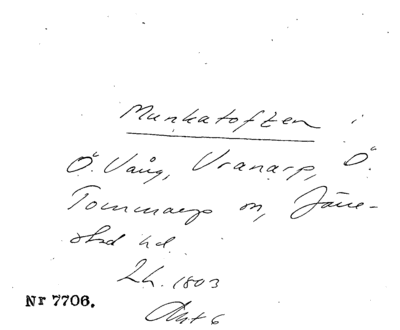 Munkatoften i
Ö. Vång, Vranarp, Ö.
Tommarp sn, Järre-
stad hd.
Lh. 1803
Akt 6
Nr 7706.